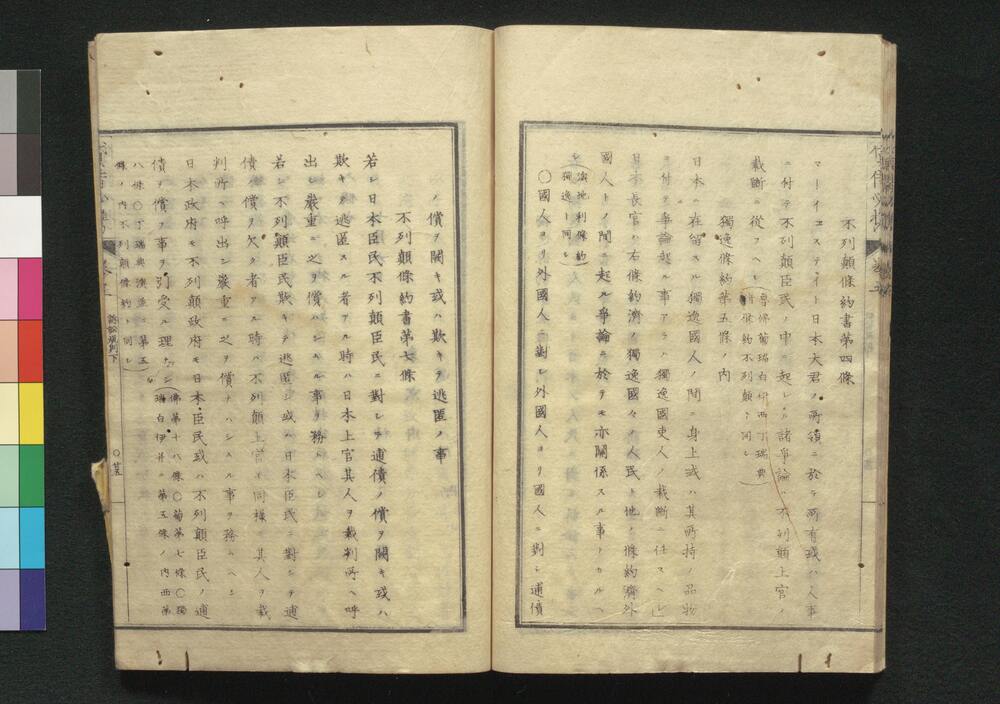 不列顛條約書第四條
マーイエステイト日本大君ノ所領ニ於テ所有或ハ人事
ニ付テ不列顛臣民ノ中ニ起レル諸爭論ハ不列顛上官ノ
裁斷ニ從フヘシ
獨逸條約第五條ノ内
日本ニ在留スル獨逸國人ノ間ニ身上或ハ其所持ノ品物
ニ付テ爭論起ル事アラハ獨逸國吏人ノ裁斷ニ任スヘシ
日本長官ハ右條約濟ノ獨逸國々ノ人民ト他ノ條約濟外
國人トノ間ニ起ル爭論ニ於テモ亦關係スル事ナカルヘ
シ(澳地利條約
獨逸ト同シ)
○國人ヨリ外國人ニ對シ外國人ヨリ國人ニ對シ逋債
ノ償ヲ闕キ或ハ欺キテ逃匿ノ事
不列顛條約書第七條
若シ日本臣民不列顛臣民ニ對シテ逋債ノ償ヲ闕キ或ハ
欺キテ逃匿スル者アル時ハ日本上官其人ヲ裁判所ヘ呼
出シ嚴重ニ之ヲ償ハシムル事ヲ務ムヘシ
若シ不列顛臣民欺キテ逃匿シ或ハ日本臣民ニ對シテ逋
債ノ償ヲ欠ク者アル時ハ不列顛上官モ同樣ニ其人ヲ裁
判所ヘ呼出シ嚴重ニ之ヲ償ナハシムル事ヲ務ムヘシ
日本政府モ不列顛政府モ日本臣民或ハ不列顛臣民ノ逋
債ノ償ノ事ヲ引受ルノ理ナシ(佛第十八條○葡第七條○獨
瑞白伊丼第五條ノ内西第
八條○丁瑞典澳並ニ第五
條ノ内不列顛條約ト同シ)
訴訟裁判下
○廿五